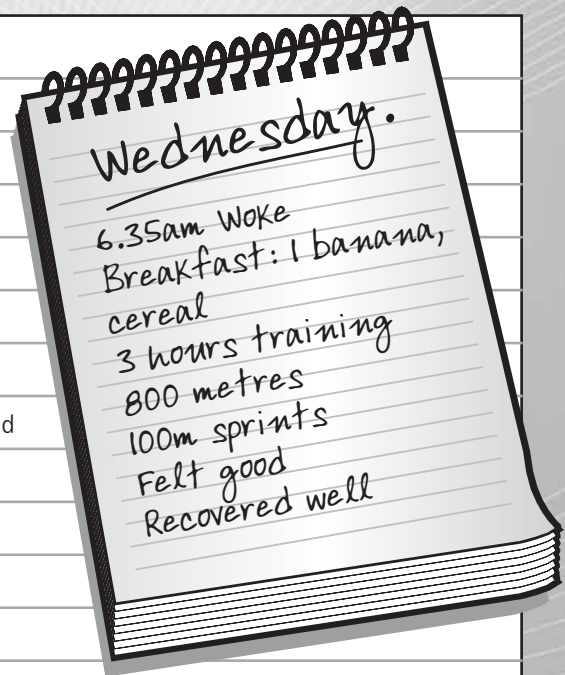 Wednesday.
6.35am Woke
Breakfast: 1 banana,
cereal
3 hours training
800 metres
100m sprints
Felt good
Recovered well
d